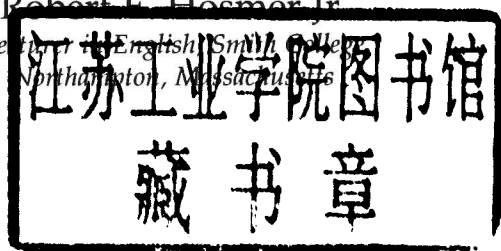 Robert E. Hosmer Jr.
Lecturer in English, Smith College
Northampton, Massachusetts
江苏工业学院图书馆
藏书章